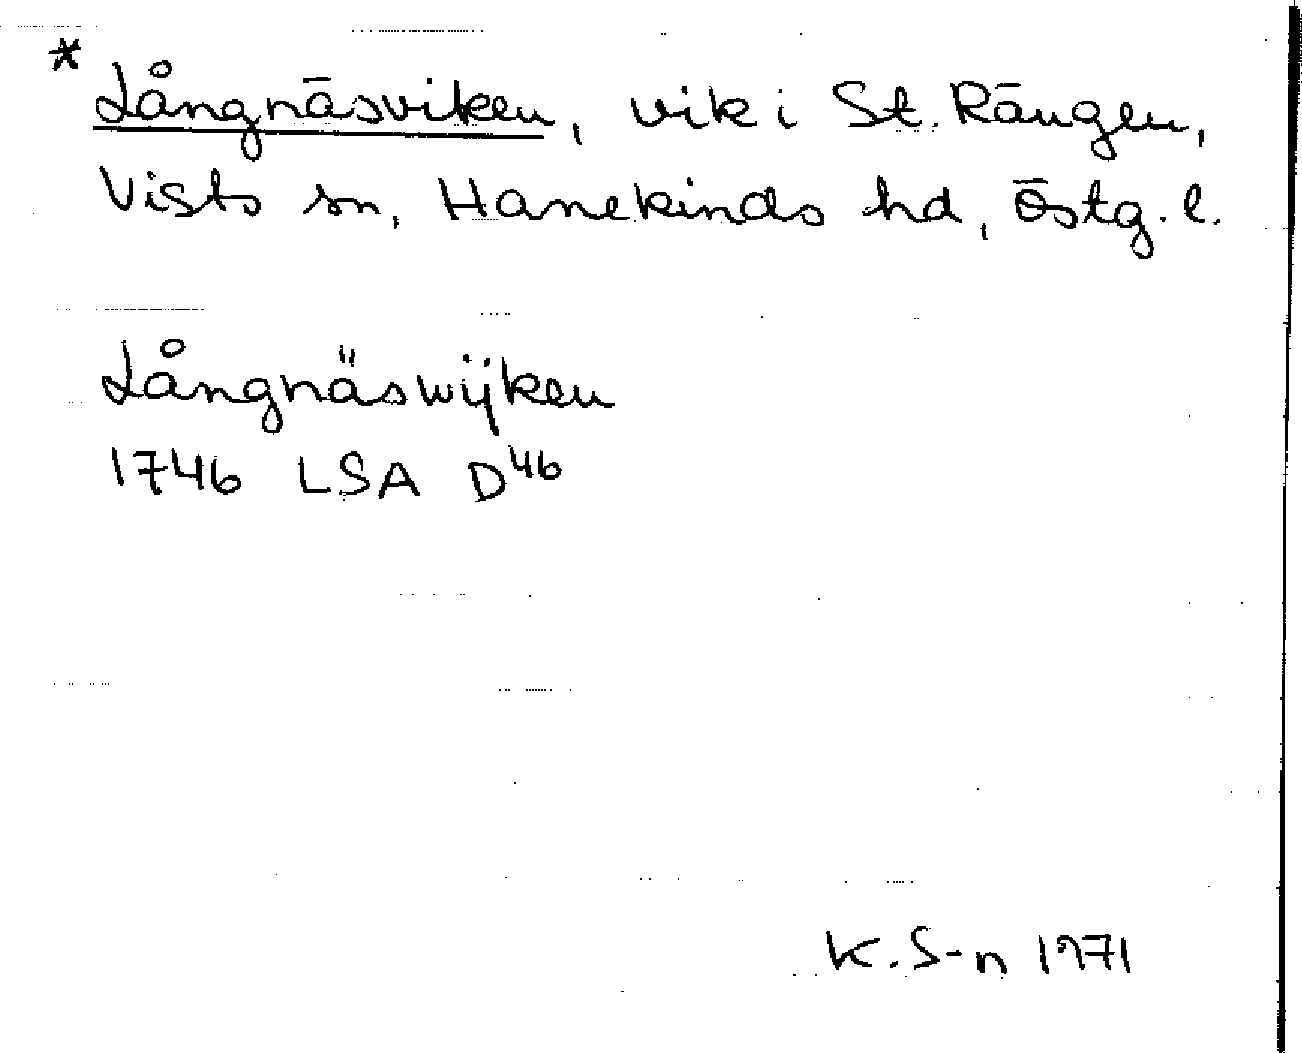 * Långnäsviken, vik i St. Rängen,
Vists sn, Hanekinds hd, Östg. l.
Långnäswijken
1746 LSA D46
K. S-n 1971